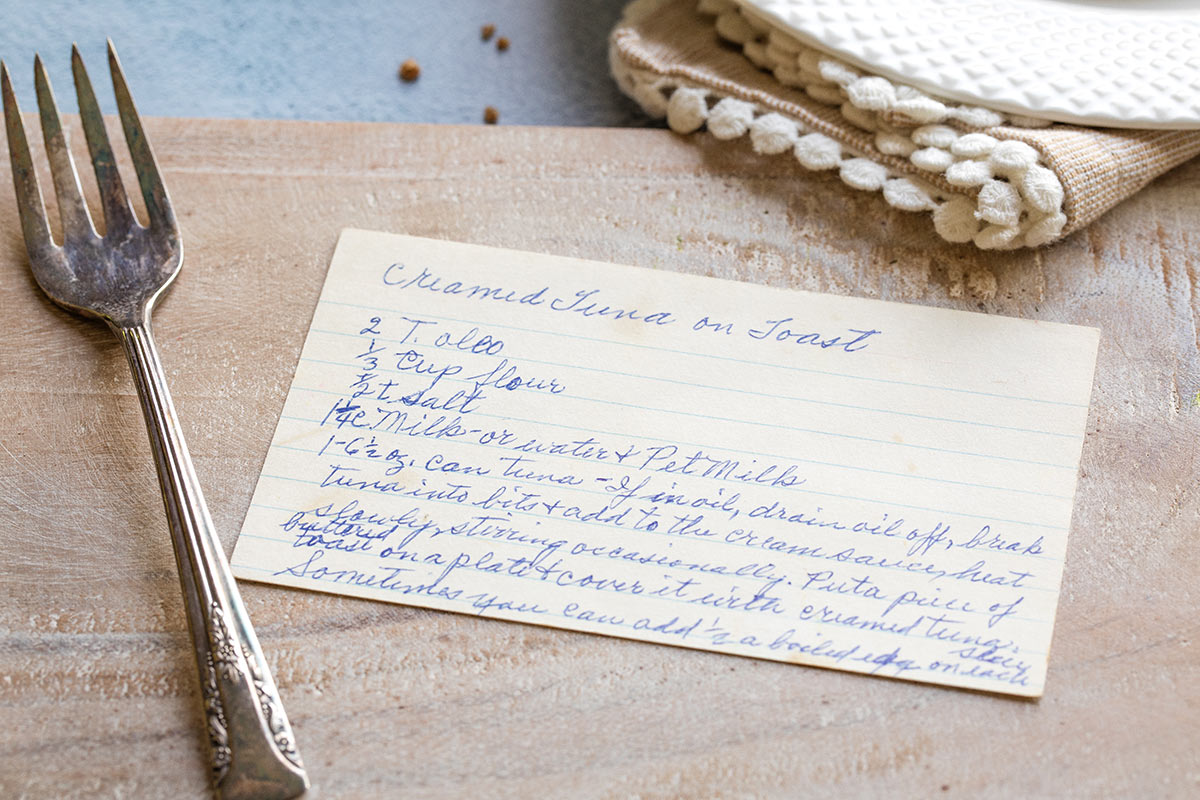 Creamed Tuna on Toast
2 T. oleo
1/3 Cup flour
1/2 t. salt
1 1/4 c. Milk - or water & Pet Milk
1-6 1/2 oz. can tuna - If in oil, drain oil off, break
tuna into bits & add to the cream sauce, heat
slowly, stirring occasionally. Put a piece of
buttered toast on a plate & cover it with creamed tuna.
Sometimes you can add 1/2 a boiled egg on each slice